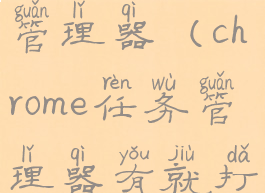 guǎn lǐ qì
管理器（ch
rèn wù guǎn
rome任务管
lǐ qì yǒu jiù dǎ
理器有就打